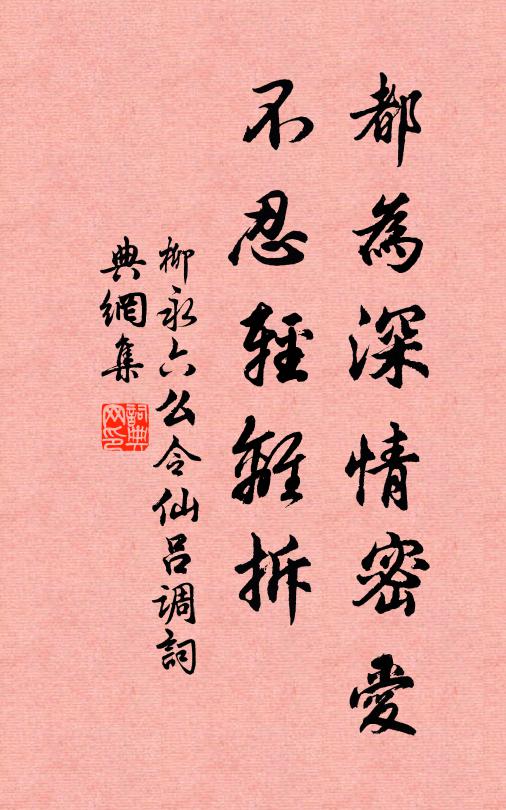 都為深情密愛
不忍輕離拆
柳永六么令仙吕调詞
典網集
詞典
网印